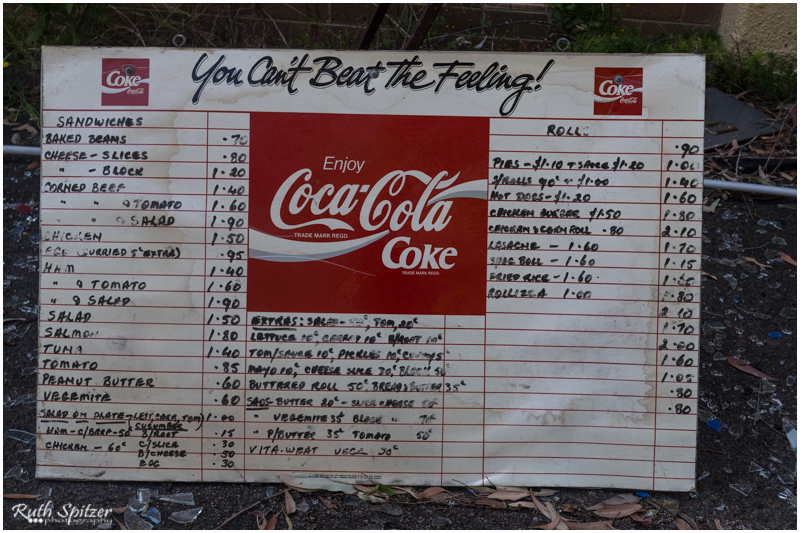 You Can't Beat The Feeling!
Coke
Coca-Cola
Coke
Coca-Cola
SANDWICHES
BAKED BEANS .70
CHEESE - SLICES .80
" - BLOCK 1.20
CORNED BEEF 1.40
" " & TOMATO 1.60
" " & SALAD 1.90
CHICKEN 1.50
EGG (CURRIED 5¢ EXTRA) .95
HAM 1.40
" & TOMATO 1.60
" & SALAD 1.90
SALAD 1.50
SALMON 1.80
TUNA 1.40
TOMATO .85
PEANUT BUTTER .60
VEGEMITE .60
SALAD ON PLATE - LETT, CARR, TOM, 1.00
CUCUMBER
HAM - C/BEEF - 50¢ B/ROOT .15
CHICKEN - 60¢ C/SLICE .30
B/CHEESE .50
EGG .30
Enjoy
Coca-Cola
TRADE MARK REGD.
Coke
TRADE MARK REGD.
EXTRAS: SALAD - TOM, 20¢
LETTUCE 10¢, CARROT 10¢ B/ROOT 10¢
TOM/SAUCE 10¢, PICKLES 10¢
MAYO 10¢, CHEESE SLICE 30¢, BLOCK 50¢
BUTTERED ROLL 50¢ BREAD & BUTTER 35¢
SAOS - BUTTER 20¢ - SLICE CHEESE
" VEGEMITE 35¢ BLOCK " 70¢
" P/BUTTER 35¢ TOMATO 50¢
VITA-WEAT VEGE 30¢
ROLLS
.90
PIES - $1.10 + SAUCE $1.20 1.00
S/ROLLS 90¢ + $1.00 1.40
HOT DOGS - $1.20 1.60
CHICKEN BURGER $1.50 1.80
CHICKEN & CORN ROLL .80 2.10
LASAGNE - 1.60 1.70
SPAG BOLL - 1.60 1.15
FRIED RICE - 1.60
ROLLIZZA 1.00 .80
2.10
1.70
2.00
1.60
1.05
.80
.80
Ruth Spitzer
photography